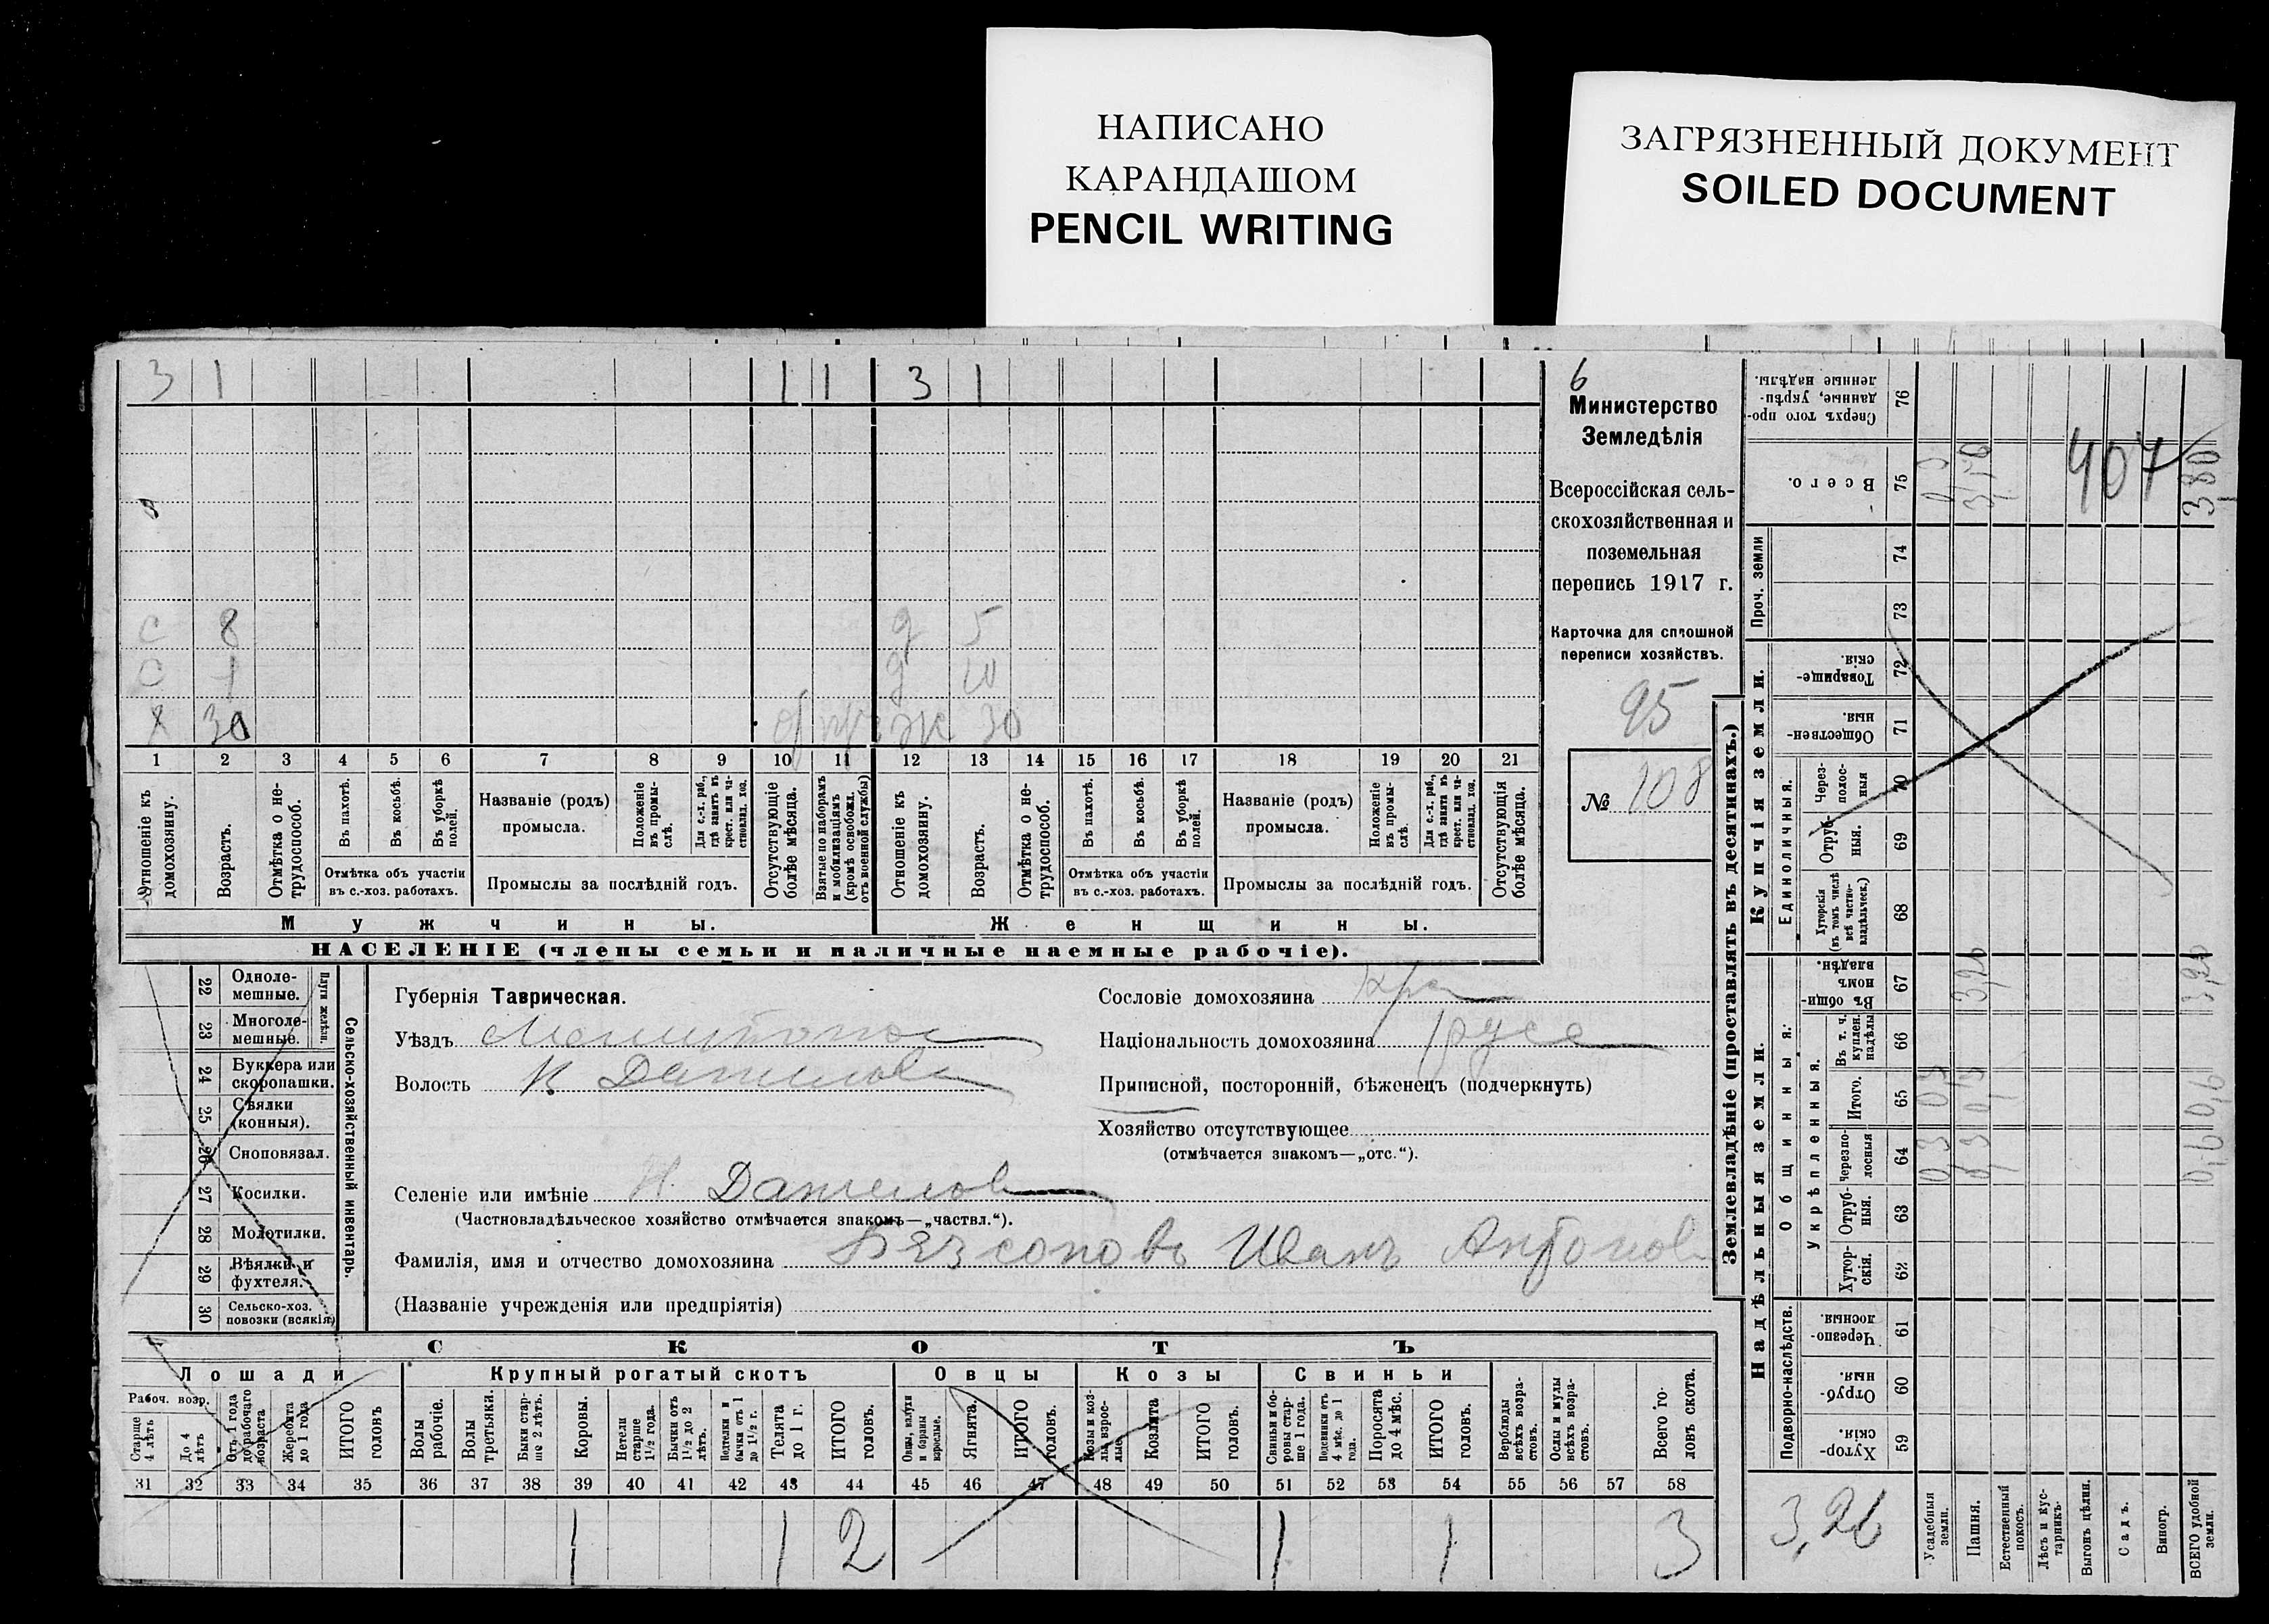 НАПИСАНО
КАРАНДАШОМ
PENCIL WRITING
ЗАГРЯЗНЕННЫЙ ДОКУМЕНТ
SOILED DOCUMENT
3 1 1 1 3 1
С 8 д 5
С 1 д 10
Х 30 ж 30
1 2 3 4 5 6 7 8 9 10 11 12 13 14 15 16 17 18 19 20 21
Отношеніе къ домохозяину.
Возрастъ.
Отмѣтка о не-трудоспособ.
Въ пахотѣ.
Въ косьбѣ.
Въ уборкѣ полей.
Отмѣтка объ участіи въ с.-хоз. работахъ.
Названіе (родъ) промысла.
Положеніе въ промы-слѣ.
Для с.-х. раб., гдѣ занятъ въ крест. или ча-стновлад. хоз.
Промыслы за послѣдній годъ.
Отсутствующіе болѣе мѣсяца.
Взятые по наборамъ и мобилизаціямъ (кромѣ освобожд. отъ военной службы)
Отношеніе къ домохозяину.
Возрастъ.
Отмѣтка о не-трудоспособ.
Въ пахотѣ.
Въ косьбѣ.
Въ уборкѣ полей.
Отмѣтка объ участіи въ с.-хоз. работахъ.
Названіе (родъ) промысла.
Положеніе въ промы-слѣ.
Для с.-х. раб., гдѣ занята въ крест. или ча-стновлад. хоз.
Промыслы за послѣдній годъ.
Отсутствующія болѣе мѣсяца.
Мужчины.
Женщины.
НАСЕЛЕНІЕ (члены семьи и наличные наемные рабочіе).
6
Министерство
Земледѣлія
Всероссійская сель-
скохозяйственная и
поземельная
перепись 1917 г.
Карточка для сплошной
переписи хозяйствъ.
95
№ 108
22 Одноле-мешные.
23 Многоле-мешные.
Плуги желѣзн.
24 Буккера или скоропашки.
25 Сѣялки (конныя).
26 Сноповязал.
27 Косилки.
28 Молотилки.
29 Вѣялки и фухтеля.
30 Сельско-хоз. повозки (всякія)
Сельско-хозяйственный инвентарь.
Губернія Таврическая.
Уѣздъ Мелитопол
Волость Н Данилов
Селеніе или имѣніе Н. Данилов
(Частновладѣльческое хозяйство отмѣчается знакомъ—„частвл.“).
Фамилія, имя и отчество домохозяина Безсоновъ Иванъ Антонов
(Названіе учрежденія или предпріятія)
Сословіе домохозяина кре
Національность домохозяина русс
Приписной, посторонній, бѣженецъ (подчеркнуть)
Хозяйство отсутствующее
(отмѣчается знакомъ—„отс.“).
СКОТЪ
Лошади
Крупный рогатый скотъ
Овцы
Козы
Свиньи
Рабоч. возр.
Старше 4 лѣтъ
До 4 лѣтъ
Отъ 1 года до рабочаго возраста
Жеребята до 1 года
ИТОГО головъ
Волы рабочіе.
Волы третьяки.
Быки стар-ше 2 лѣтъ.
Коровы.
Нетели старше 1½ года.
Бычки отъ 1½ до 2 лѣтъ.
Подтелки и бычки отъ 1 до 1½ г.
Телята до 1 г.
ИТОГО головъ.
Овцы, валухи и бараны взрослые.
Ягнята.
ИТОГО головъ.
Козы и коз-лы взрос-лые.
Козлята
ИТОГО головъ.
Свиньи и бо-ровы стар-ше 1 года.
Подсвинки отъ 4 мѣс. до 1 года.
Поросята до 4 мѣс.
ИТОГО головъ.
Верблюды всѣхъ возра-стовъ.
Ослы и мулы всѣхъ возра-стовъ.
Всего го-ловъ скота.
31 32 33 34 35 36 37 38 39 40 41 42 43 44 45 46 47 48 49 50 51 52 53 54 55 56 57 58
1 1 2 1 1 3
Землевладѣніе (проставлять въ десятинахъ.)
Купчія земли.
Надѣльныя земли.
Сверхъ того про-данные, укрѣп-ленные надѣлы. 76
Всего. 75
Проч. земли 74 73
Товарище-скія. 72
Обществен-ныя. 71
Единоличныя.
Через-полос-ныя 70
Отруб-ныя. 69
Хуторскія (въ томъ числѣ всѣ частно-владѣльческ.) 68
Общинныя:
Въ общи-номъ владѣн. 67
Укрѣпленныя.
Въ т. ч. куплен. надѣлы 66
Итого. 65
Черезпо-лосныя 64
Отруб-ныя. 63
Хутор-скія. 62
Подворно-наслѣдств.
Черезпо-лосныя 61
Отруб-ныя. 60
Хутор-скія. 59
407
380
3,26
3,26
3,26
Усадебныя земли.
Пашня.
Естественный покосъ.
Лѣсъ и кус-тарникъ.
Выгонъ цѣлин.
Садъ.
Виногр.
ВСЕГО удобной земли.